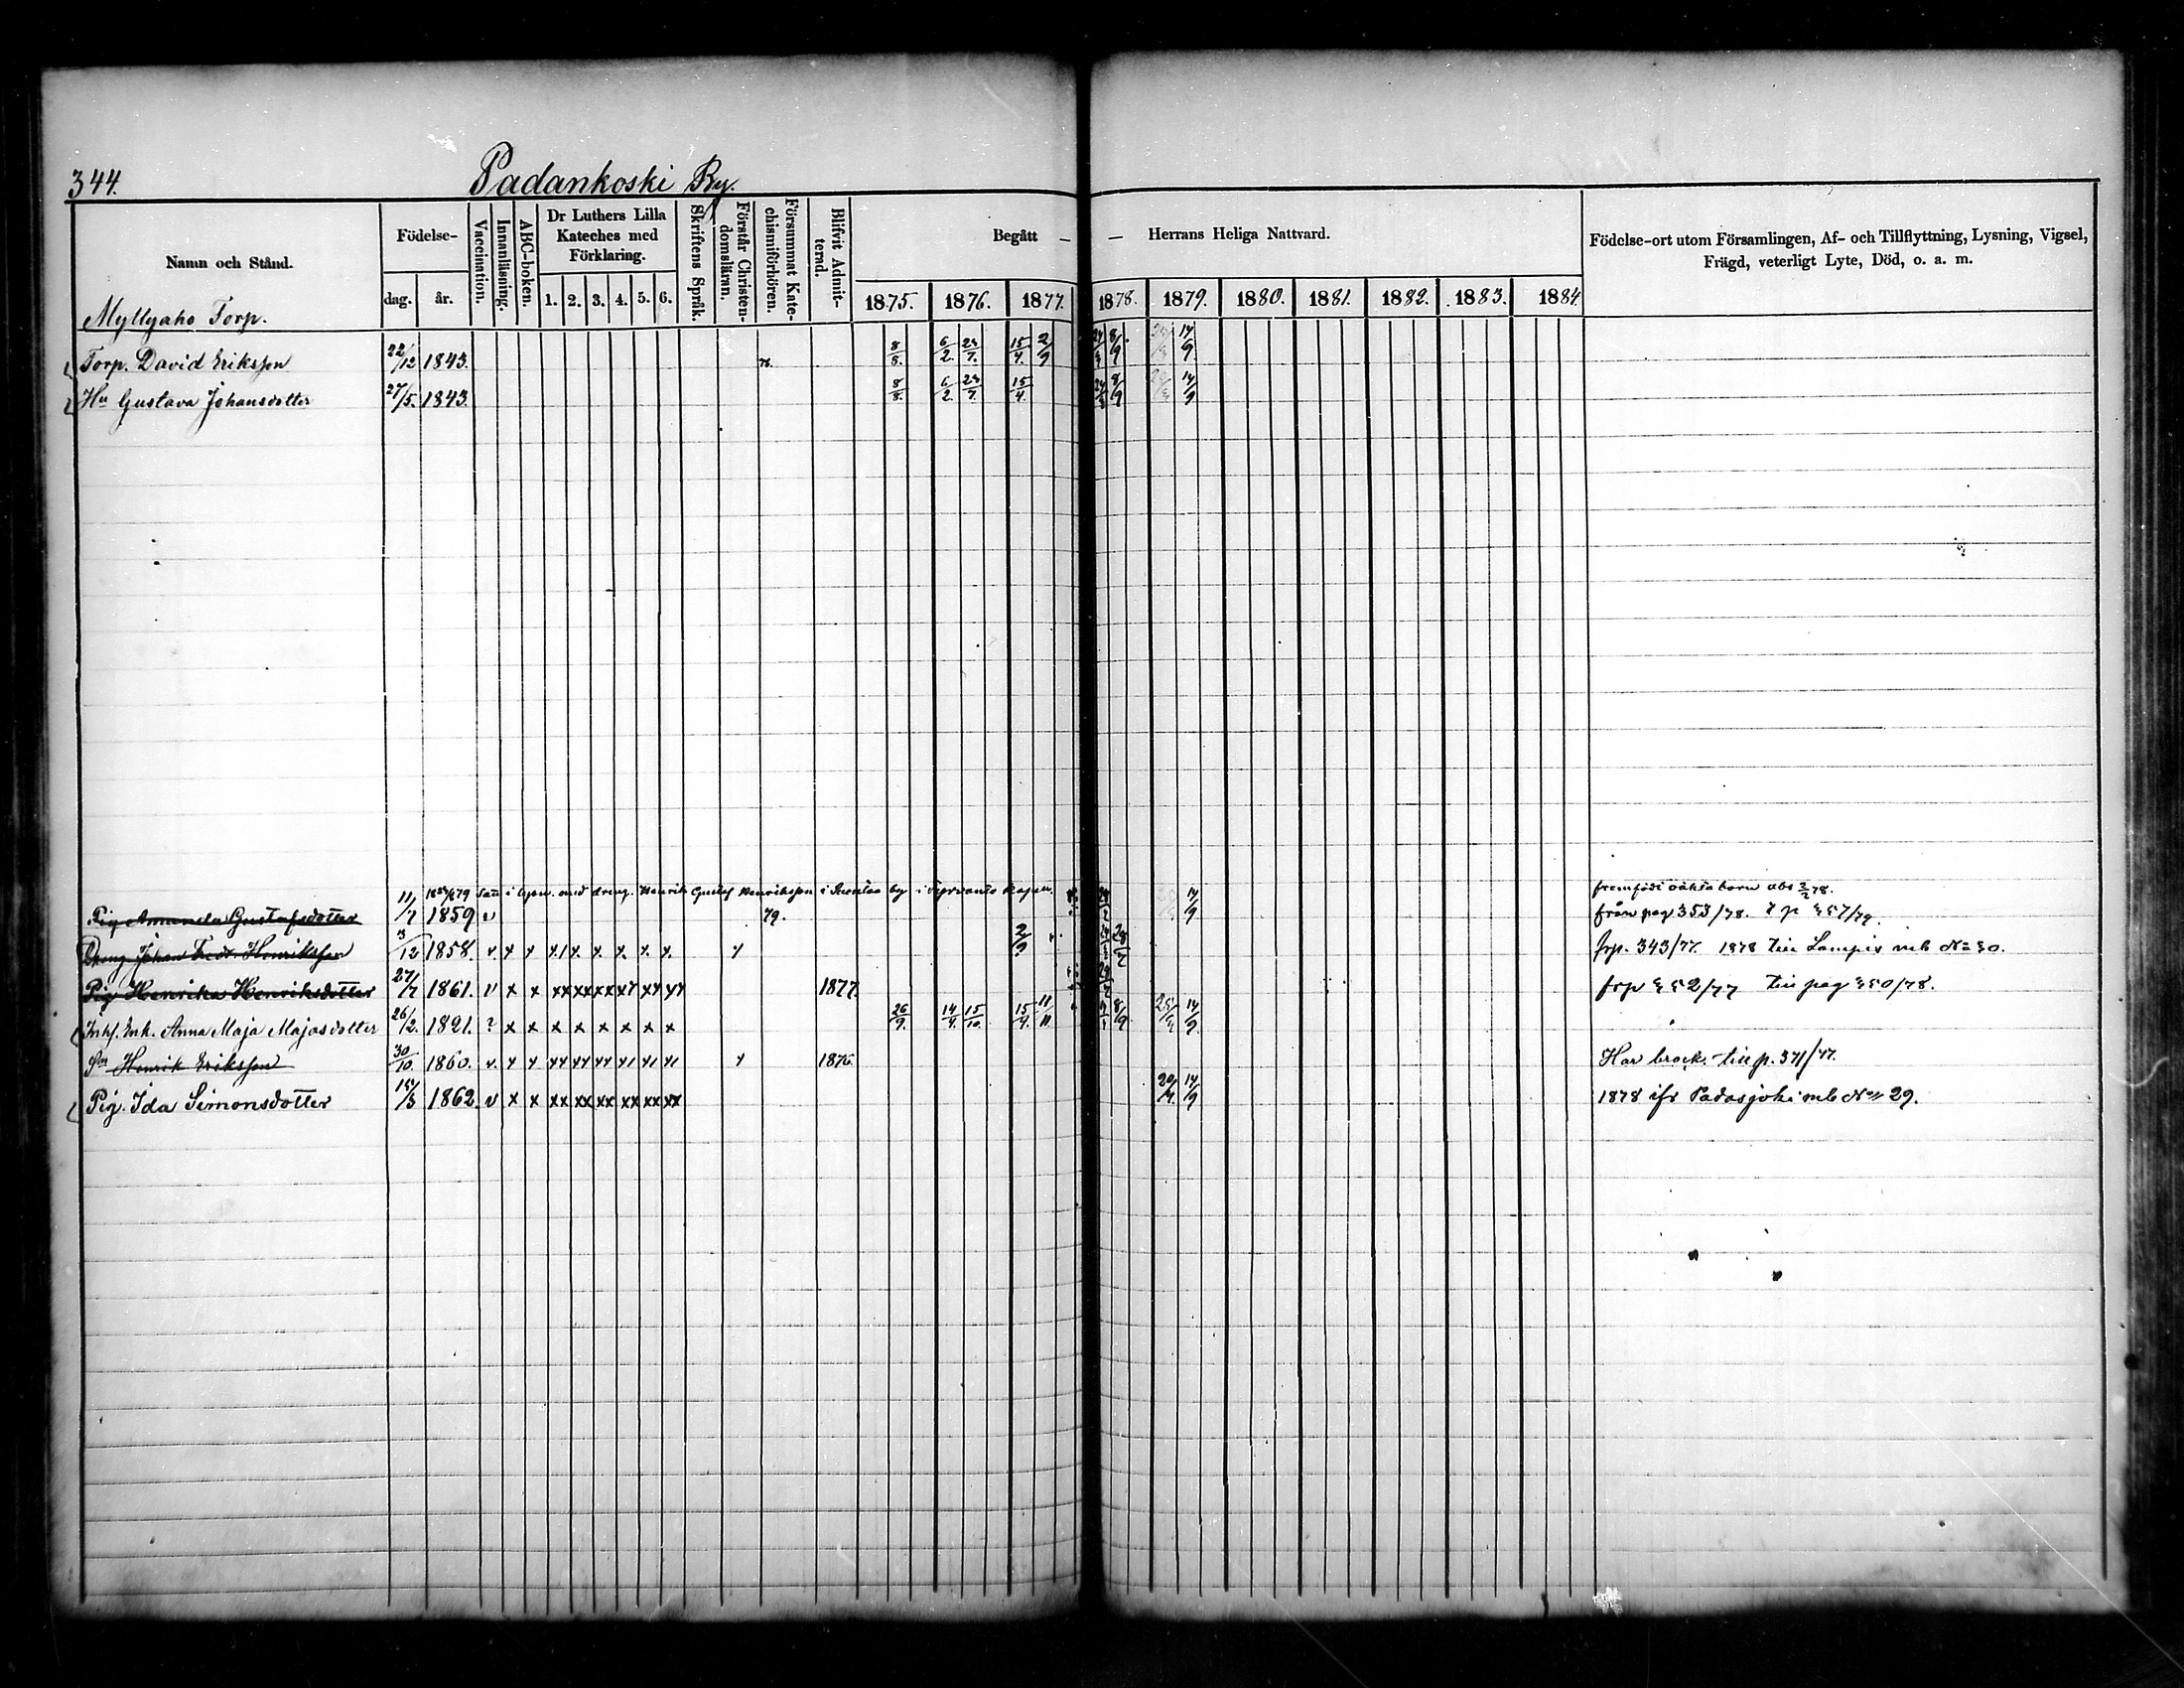 344.
Padankoski By.
Namn och Stånd.
Födelse-
dag. år.
Vaccination.
Innanläsning.
ABC-boken.
Dr Luthers Lilla Kateches med Förklaring.
1. 2. 3. 4. 5. 6.
Skriftens Språk.
Förstår Christendomsläran.
Försummat Katechismiförhören.
Blifvit Admitterad.
Begått — — Herrans Heliga Nattvard.
1875. 1876. 1877. 1878. 1879. 1880. 1881. 1882. 1883. 1884
Födelse-ort utom Församlingen, Af- och Tillflyttning, Lysning, Vigsel,
Frägd, veterligt Lyte, Död, o. a. m.
Myllyaho Torp.
Torp. David Eriksson 22/12 1843. 76. 8/8. 6/2. 23/7. 15/4. 2/9 8/9. 14/9
Hu Gustava Johansdotter 27/5. 1843. 8/8. 6/2. 23/7. 15/4. 8/9 14/9
Henrik Gustaf Henriksson i by i
framfödt oäkta barn 3/2 78.
Pig Amanda Gustafsdotter 11/7 1859 v 79. 14/9 från pag 353/78.
Dreng Johan Fredr. Henriksson 3/12 1858. 2/9 frp. 343/77. 1878 till Lampis mb № 30.
Pig Henrika Henriksdotter 27/7 1861. v x x 1877. frp 352/77 till pag 350/78.
Enk. Anna Maja Majasdotter 26/2. 1821. ? x x x x x x x x 26/9. 14/4. 15/10. 15/4. 11/11 8/9. 14/9.
Sn Henrik Eriksson 30/10 1860. 1876. Har brock. till p. 371/77.
Pig. Ida Simonsdotter 15/3 1862. v x x xx xx xx xx xx xx 20/4. 14/9 1878 ifr Padasjoki mb № 29.